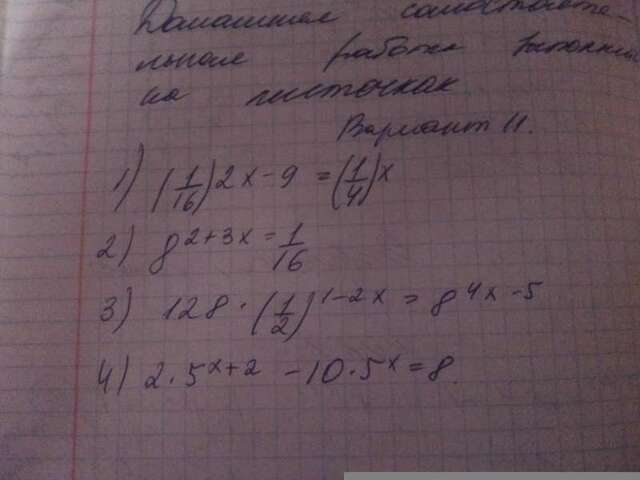 Домашняя самостояте-
льная работа
на листочках
Вариант 11.
1) (1/16)^{2x-9} = (1/4)^x
2) 8^{2+3x} = 1/16
3) 128 · (1/2)^{1-2x} = 8^{4x-5}
4) 2·5^{x+2} - 10·5^x = 8.